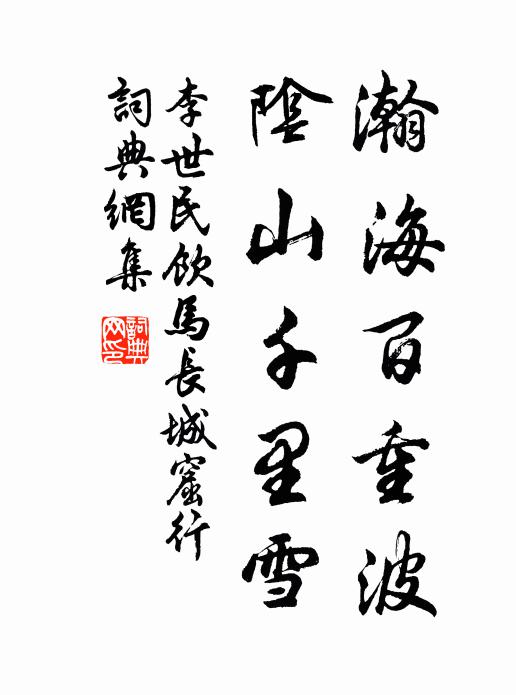 瀚海百重波
陰山千里雪
李世民飲馬長城窟行
詞典網集
詞典网印